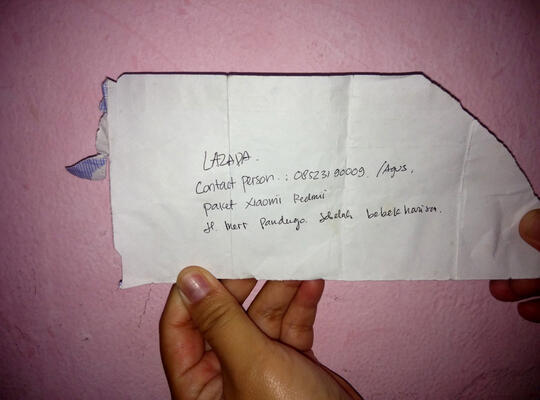 LAZADA.
Contact person : 08523190009. /Agus,
paket Xiaomi Redmi
Jl. Merr Pandugo. Sebelah bebek harisa.